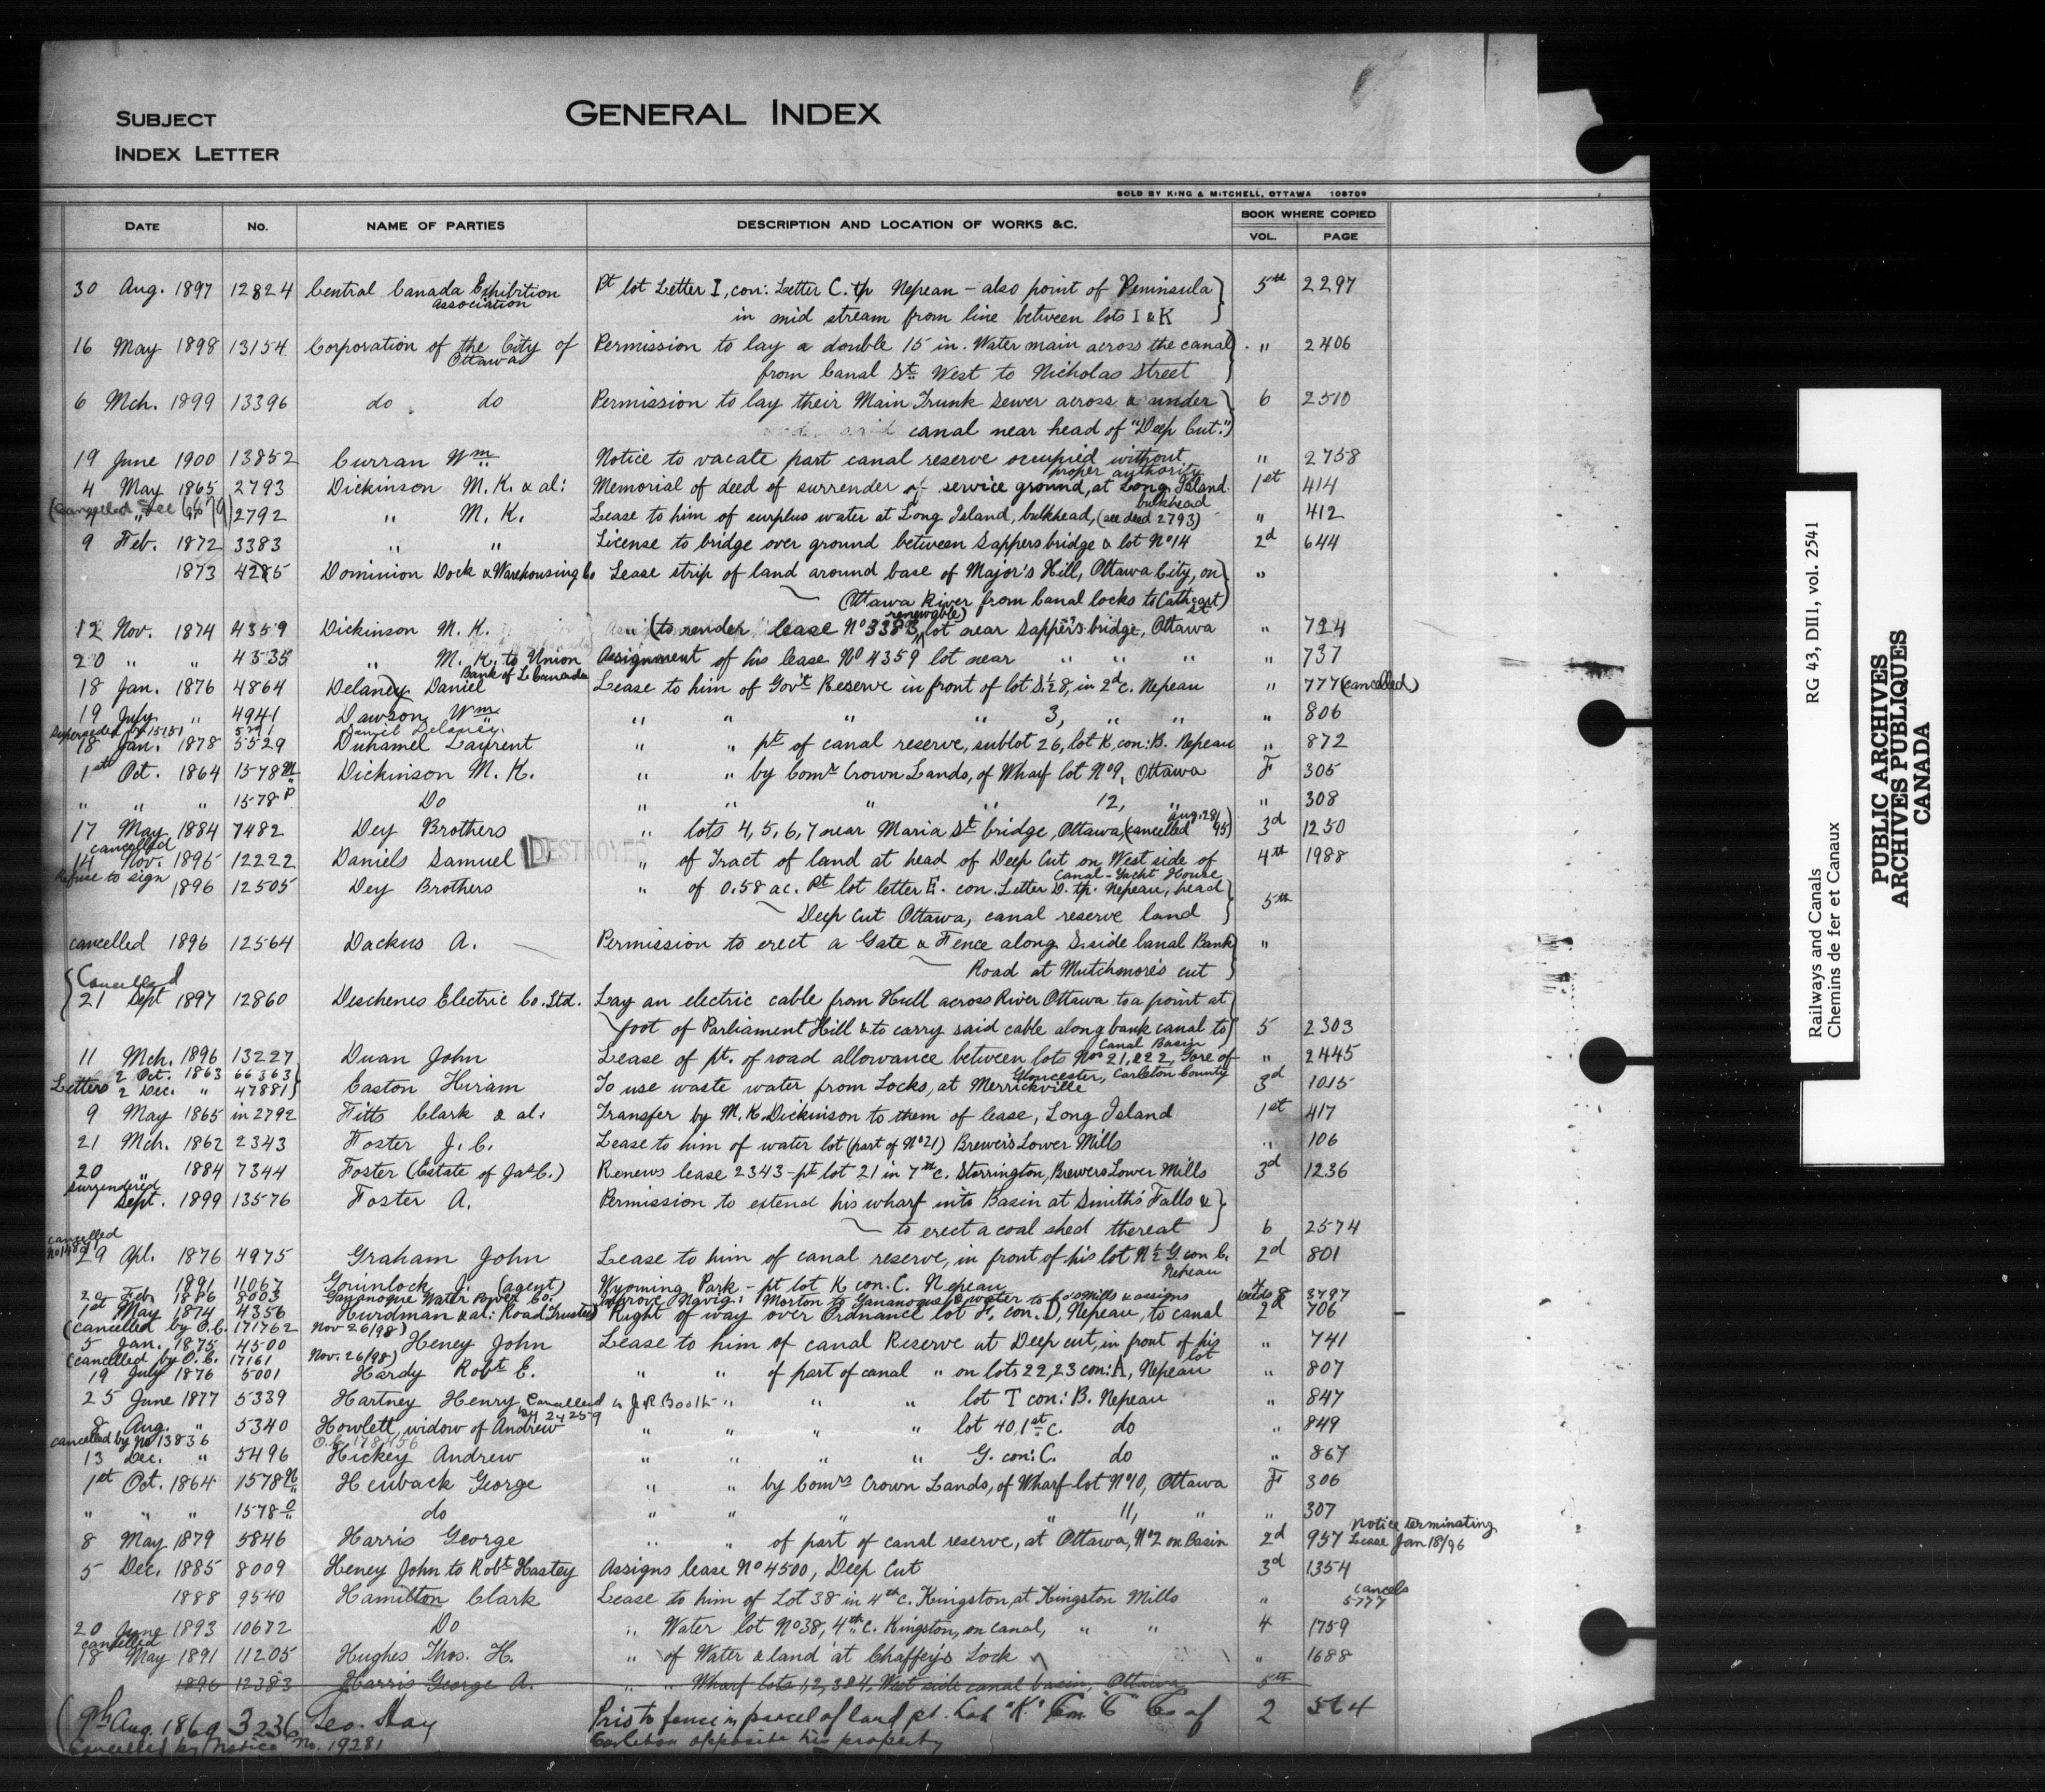 SUBJECT
GENERAL INDEX
INDEX LETTER
SOLD BY KING & MITCHELL, OTTAWA 108709
DATE No. NAME OF PARTIES DESCRIPTION AND LOCATION OF WORKS &C. BOOK WHERE COPIED
VOL. PAGE
30 Aug. 1897 12824 Central Canada Exhibition Association Pt lot Letter I, con: Letter C. tp Nepean - also point of Peninsula 5th 2297
in mid stream from line between lots I & K
16 May 1898 13154 Corporation of the City of Ottawa Permission to lay a double 15 in. Water main across the canal " 2406
from Canal St. West to Nicholas Street
6 Mch. 1899 13396 do do Permission to lay their Main Trunk Sewer across & under 6 2510
canal near head of "Deep Cut."
19 June 1900 13852 Curran Wm Notice to vacate part canal reserve occupied without proper authority " 2758
4 May 1865 2793 Dickinson M. K. & al: Memorial of deed of surrender of service ground, at Long Island bulkhead 1st 414
4 " " 2792 " M. K. Lease to him of surplus water at Long Island, bulkhead, (see deed 2793) " 412
9 Feb. 1872 3383 " " License to bridge over ground between Sappers bridge & lot No 14 2d 644
1873 4285 Dominion Dock & Warehousing Co Lease strip of land around base of Major's Hill, Ottawa City, on "
Ottawa River from Canal locks to Cathcart St
12 Nov. 1874 4359 Dickinson M. K. (to render renewable) lease No 3383, lot near Sapper's bridge, Ottawa " 724
20 " " 4535 " M. K. to Union Bank of L. Canada Assignment of his lease No 4359 lot near " " " " 737
18 Jan. 1876 4864 Delaney Daniel Lease to him of Gov't Reserve in front of lot S.½ 8, in 2d c. Nepean " 777 (cancelled)
19 July " 4941 Dawson Wm " " " " 3, " " " 806
Superseded by 15151 5291 Daniel Delaney
18 Jan. 1878 5529 Duhamel Laurent " " pt of canal reserve, sublot 26, lot K, con: B. Nepean " 872
1st Oct. 1864 1578 M Dickinson M. K. " " by Comr Crown Lands, of Wharf lot No 9, Ottawa F 305
" " " 1578 P Do " " " " 12, " " 308
17 May 1884 7482 Dey Brothers " lots 4, 5, 6, 7 near Maria St bridge, Ottawa, (cancelled Aug. 28/95) 3d 1250
cancelled
14 Nov. 1895 12222 Daniels Samuel DESTROYED " of Tract of land at head of Deep Cut on West side of Canal - Yacht House 4th 1988
Refuse to sign
1896 12505 Dey Brothers " of 0.58 ac. Pt lot letter E. con. Letter D. tp. Nepean, head 5th
Deep Cut Ottawa, canal reserve land
cancelled 1896 12564 Dackus A. Permission to erect a Gate & Fence along S. side Canal Bank "
Road at Mutchmore's cut
Cancelled
21 Sept 1897 12860 Deschenes Electric Co. Ltd. Lay an electric cable from Hull across River Ottawa to a point at
foot of Parliament Hill & to carry said cable along bank canal to Canal Basin 5 2303
11 Mch. 1896 13227 Duan John Lease of pt. of road allowance between lots Nos 21, & 22, Gore of Gloucester, Carleton County " 2445
Letters 2 Oct. 1863 66363
2 Dec. " 47881 Easton Hiram To use waste water from Locks, at Merrickville 3d 1015
9 May 1865 in 2792 Fitts Clark & al. Transfer by M. K. Dickinson to them of lease, Long Island 1st 417
21 Mch. 1862 2343 Foster J. C. Lease to him of water lot (part of No 21) Brewer's Lower Mills " 106
20 " 1884 7344 Foster (Estate of Jas C.) Renews lease 2343 - pt lot 21 in 7th c. Storrington, Brewers Lower Mills 3d 1236
surrendered
7 Sept. 1899 13576 Foster A. Permission to extend his wharf into Basin at Smith's Falls &
to erect a coal shed thereat 6 2574
cancelled
29 Apl. 1876 4975 Graham John Lease to him of canal reserve, in front of his lot N ½ G. con C. Nepean 2d 801
1891 11067 Gourinlock J. (agent) Wyoming Park - pt lot K con. C. Nepean 4
22 Feb. 1886 8003 Gananoque Water Power Co. Improve Navig: Morton to Gananoque & water to Mills & assigns 3797
1st May 1874 4356 Hurdman & al: Road Trustees Right of way over Ordnance lot F, con. D, Nepean, to canal 2d 706
(cancelled by O.C. 171762 Nov 26/98)
5 Jan. 1875 4500 Heney John Lease to him of canal Reserve at Deep cut, in front of his lot " 741
(cancelled by O.C. 17161 Nov. 26/98)
19 July 1876 5001 Hardy Robt E. " " of part of canal " on lots 22, 23 con: A, Nepean " 807
25 June 1877 5339 Hartney Henry Cancelled by 24259 " J R Booth " " " lot I con: B. Nepean " 847
8 Aug. " 5340 Howlett, widow of Andrew " " " " lot 40, 1st c. do " 849
cancelled by No 13836 O.C. 178456
13 Dec. " 5496 Hickey Andrew " " " " G. con: C. do " 867
1st Oct. 1864 1578 N Heuback George " " by Comrs Crown Lands, of Wharf lot No 10, Ottawa F 306
" " " 1578 O do " " " " 11, " " 307
8 May 1879 5846 Harris George " " of part of canal reserve, at Ottawa, No 2 on Basin 2d 957 Notice terminating Lease Jan 18/96
5 Dec. 1885 8009 Heney John to Robt Hastey Assigns lease No 4500, Deep Cut 3d 1354
1888 9540 Hamilton Clark Lease to him of Lot 38 in 4th c. Kingston, at Kingston Mills " cancels 5777
20 June 1893 10672 Do " Water lot No 38, 4th c. Kingston, on canal, " " 4 1759
cancelled
18 May 1891 11205 Hughes Thos. H. " of Water & land at Chaffey's Lock " 1688
1896 12383 Harris George A. " " Wharf lots 1, 2, 3 & 4, West side canal basin, Ottawa 5th
9th Aug. 1869 3236 Geo. Hay Pris to fence in parcel of land pt. Lot "K" Con. "C" Co of 2 564
Cancelled by Notice No. 19281 Carleton opposite his property
Railways and Canals RG 43, DIII, vol. 2541
Chemins de fer et Canaux
PUBLIC ARCHIVES
ARCHIVES PUBLIQUES
CANADA